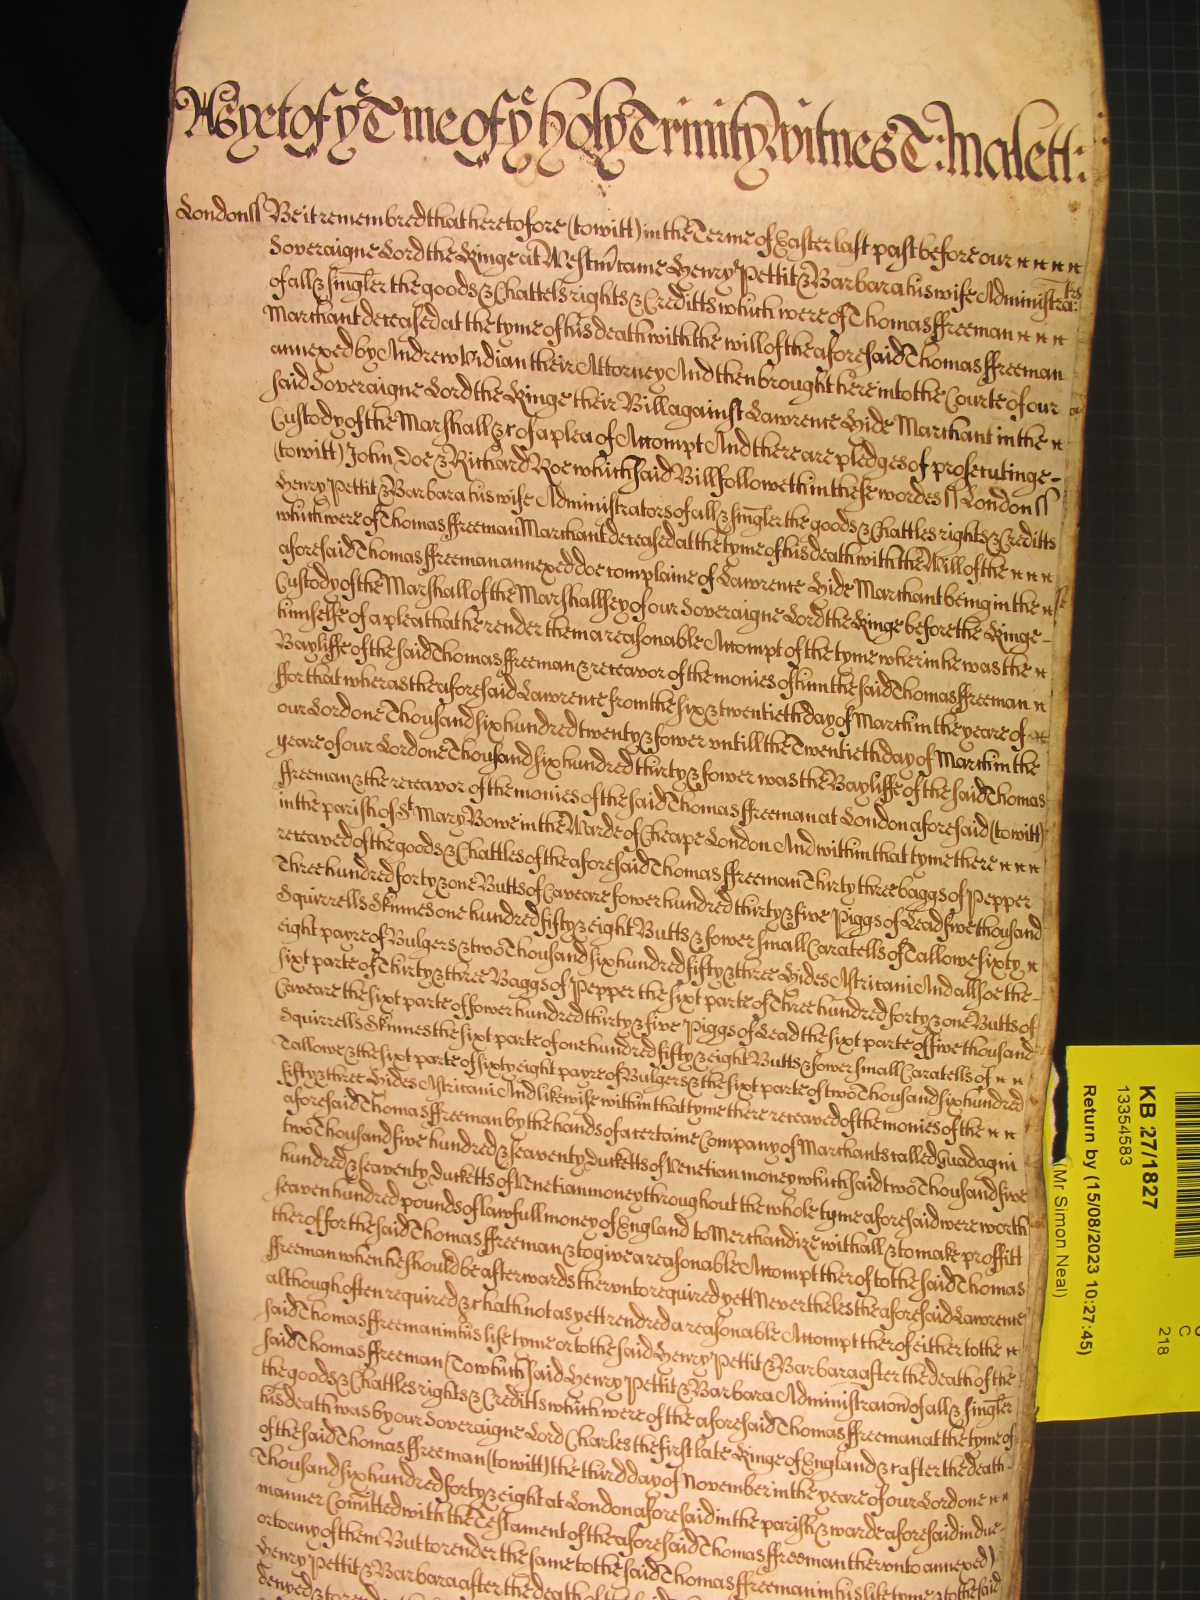 As yet of yͤ Tme of yͤ holy Trinity witnes T: Malett:
Londonss Be it remembred that heretofore (to witt) in the Terme of Easter last past before our
Soveraigne Lord the Kinge at Westm̄ came Henry Pettit & Barbara his wife Administratrs
of all & singler the goods & Chattels rights & Creditts which were of Thomas ffreeman
Marchant deceased at the tyme of his death with the will of the aforesaid Thomas ffreeman
annexed by Andrew Vidian their Attorney And then brought here into the Courte of our
said Soveraigne Lord the Kinge their Bill against Lawrence Hide Marchant in the
Custody of the Marshall &c of a plea of Accompt And there are pledges of prosecutinge
(to witt) John Doe & Richard Roe which said Bill followeth in these wordes ss London ss
Henry Pettit & Barbara his wife Administrators of all & singler the goods & Chattles rights & Creditts
which were of Thomas ffreeman Marchant deceased at the tyme of his death with the Will of the
aforesaid Thomas ffreeman annexed doe complaine of Lawrence Hide Marchant being in the
Custody of the Marshall of the Marshallsey of our Soveraigne Lord the Kinge before the Kinge
himselfe of a plea that he render them a reasonable Accompt of the tyme wherin he was the
Bayliffe of the said Thomas ffreeman & receavor of the monies of him the said Thomas ffreeman
ffor that wheras the aforesaid Lawrence from the six & twentieth day of March in the yeare of
our Lord one Thousand six hundred twenty & fower untill the Twentieth day of March in the
yeare of our Lord one Thousand six hundred thirty & fower was the Bayliffe of the said Thomas
ffreeman & the receavor of the monies of the said Thomas ffreeman at London aforesaid (to witt)
in the parish of St Mary Bowe in the Warde of Cheape London And within that tyme there
receaved of the goods & Chattles of the aforesaid Thomas ffreeman Thirty three baggs of Pepper
Three hundred forty & one Butts of Caveare fower hundred thirty & five Piggs of Lead five thousand
Squirrells Skinnes one hundred fifty & eight Butts & fower small Caratells of Tallowe sixty
eight payre of Bulgers & two Thousand six hundred fifty & three Hides Astricani And allsoe the
sixt parte of Thirty & three Baggs of Pepper the sixt parte of Three hundred forty & one Butts of
Caveare the sixt parte of fower hundred thirty & five Piggs of Lead the sixt parte of five thousand
Squirrells Skinnes the sixt parte of one hundred fifty & eight Butts & fower small Caratells of
Tallowe & the sixt parte of sixty eight payre of Bulgers & the sixt parte of two Thousand six hundred
fifty & three Hides Astricani And likewise within that tyme there receaved of the monies of the
aforesaid Thomas ffreeman by the hands of a certaine Company of Marchants called Guadagni
two Thousand five hundred & seaventy ducketts of Venetian money which said two Thousand five
hundred & seaventy ducketts of Venetian money throughout the whole tyme aforesaid were worth
seaven hundred pounds of lawfull money of England to Merchandize withall & to make proffitt
therof for the said Thomas ffreeman & to give a reasonable Accompt therof to the said Thomas
ffreeman when he should be afterwards therunto required yett Neverthelesthe aforesaid Lawrence
although often required &c hath not as yett rendred a reasonable Accompt therof either to the
said Thomas ffreeman in his life tyme or to the said Henry Pettit & Barbara after the death of the
said Thomas ffreeman (To which said Henry Pettit & Barbara Administraion of all & singler
the goods & Chattles rights & Creditts which were of the aforesaid Thomas ffreeman at the tyme of
his death was by our Soveraigne Lord Charles the first late Kinge of England &c after the death
of the said Thomas ffreeman (to witt) the third day of November in the yeare of our Lord one
Thousand six hundred forty & eight at London aforesaid in the parish & warde aforesaid in due
manner Comitted with the Testament of the aforesaid Thomas ffreeman therunto annexed)
or to any of them But to render the same to the said Thomas ffreeman in his life tyme & to the said
Henry Pettit & Barbara after the death of the said
denyed & to
KB 27/1827
13354583
Return by (15/08/2023 10:27:45)
(Mr Simon Neal)
C
218